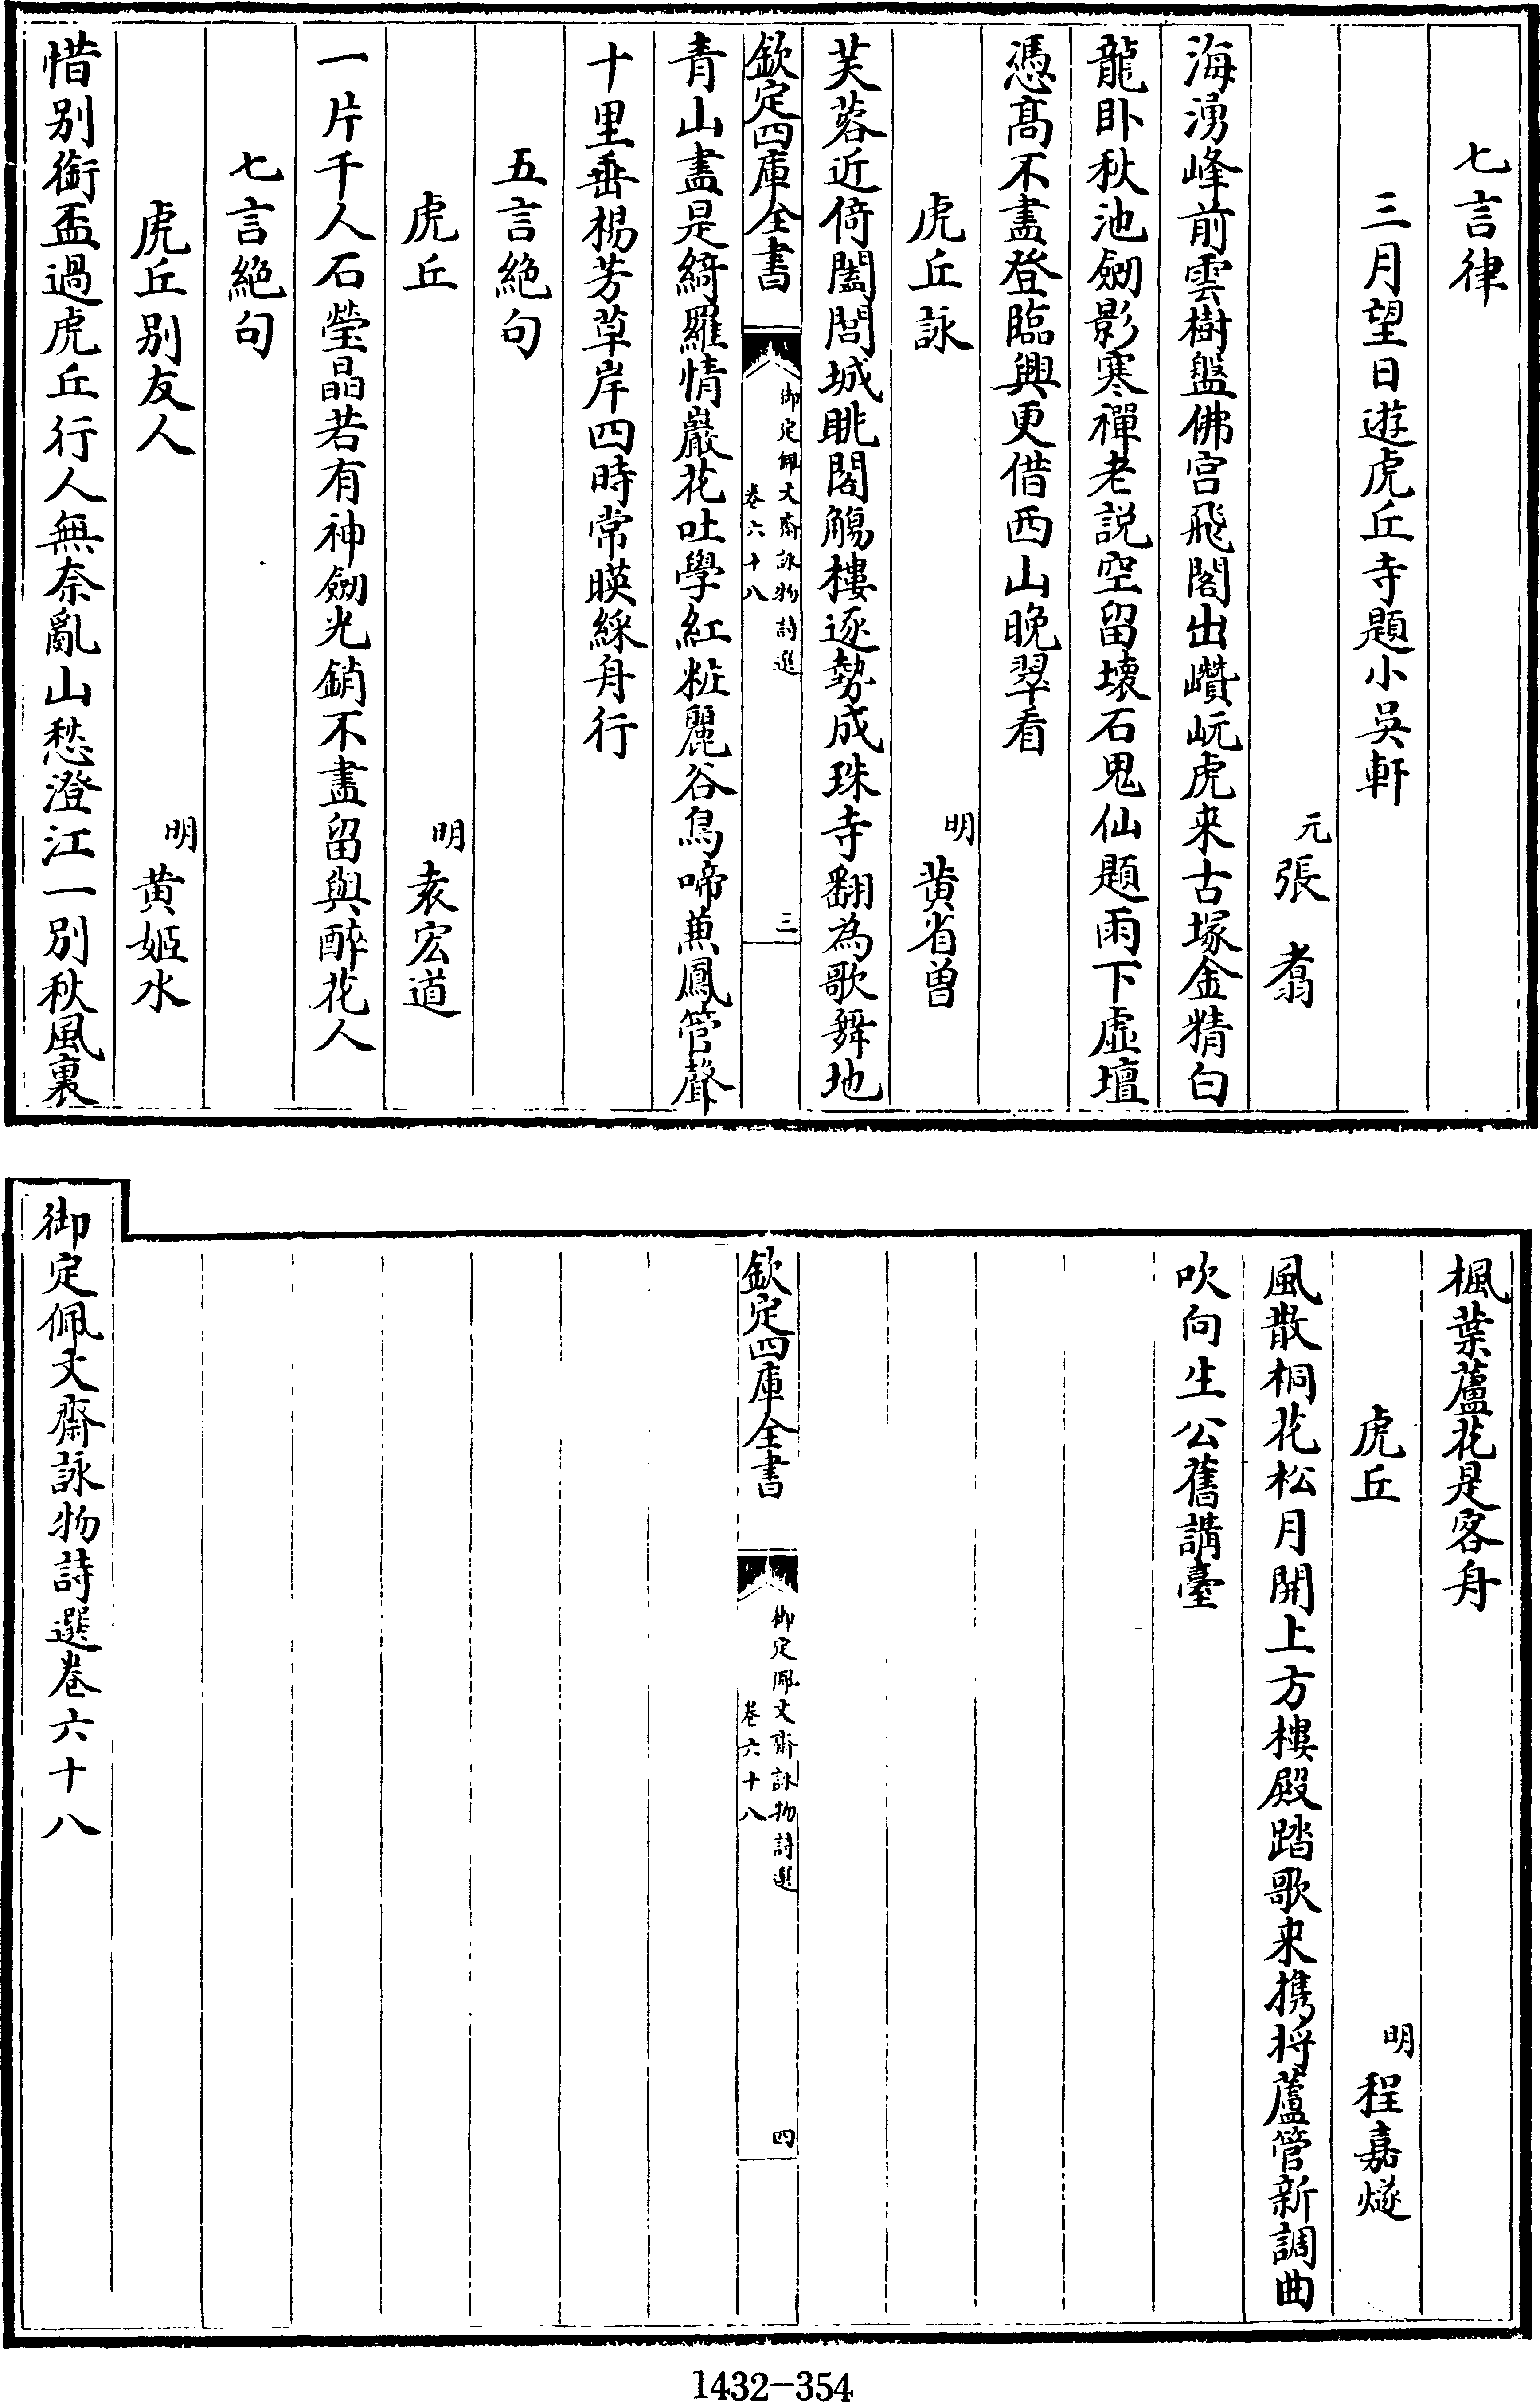 七言律
三月望日遊虎丘寺題小吳軒
元張翥
海湧峰前雲樹盤佛宫飛閣出巑岏虎来古塚金精白
龍卧秋池劒影寒禪老説空留壊石鬼仙題雨下虛壇
憑高不盡登臨興更借西山晚翠看
虎丘詠
明黄省曽
芙蓉近倚闔閭城眺閣觴樓逐勢成珠寺翻為歌舞地
欽定四庫全書
御定佩文齋詠物詩選
卷六十八
三
青山盡是綺羅情巖花吐學紅粧麗谷鳥啼兼鳳管聲
十里垂楊芳草岸四時常映綵舟行
五言絶句
虎丘
明袁宏道
一片千人石瑩晶若有神劒光銷不盡留與醉花人
七言絶句
虎丘别友人
明黄姬水
惜别銜盃過虎丘行人無奈亂山愁澄江一别秋風裏
楓葉蘆花是客舟
虎丘
明程嘉燧
風散桐花松月開上方樓殿踏歌来携将蘆管新調曲
吹向生公舊講臺
欽定四庫全書
御定佩文齋詠物詩選
卷六十八
四
御定佩文齋詠物詩選卷六十八
1432-354